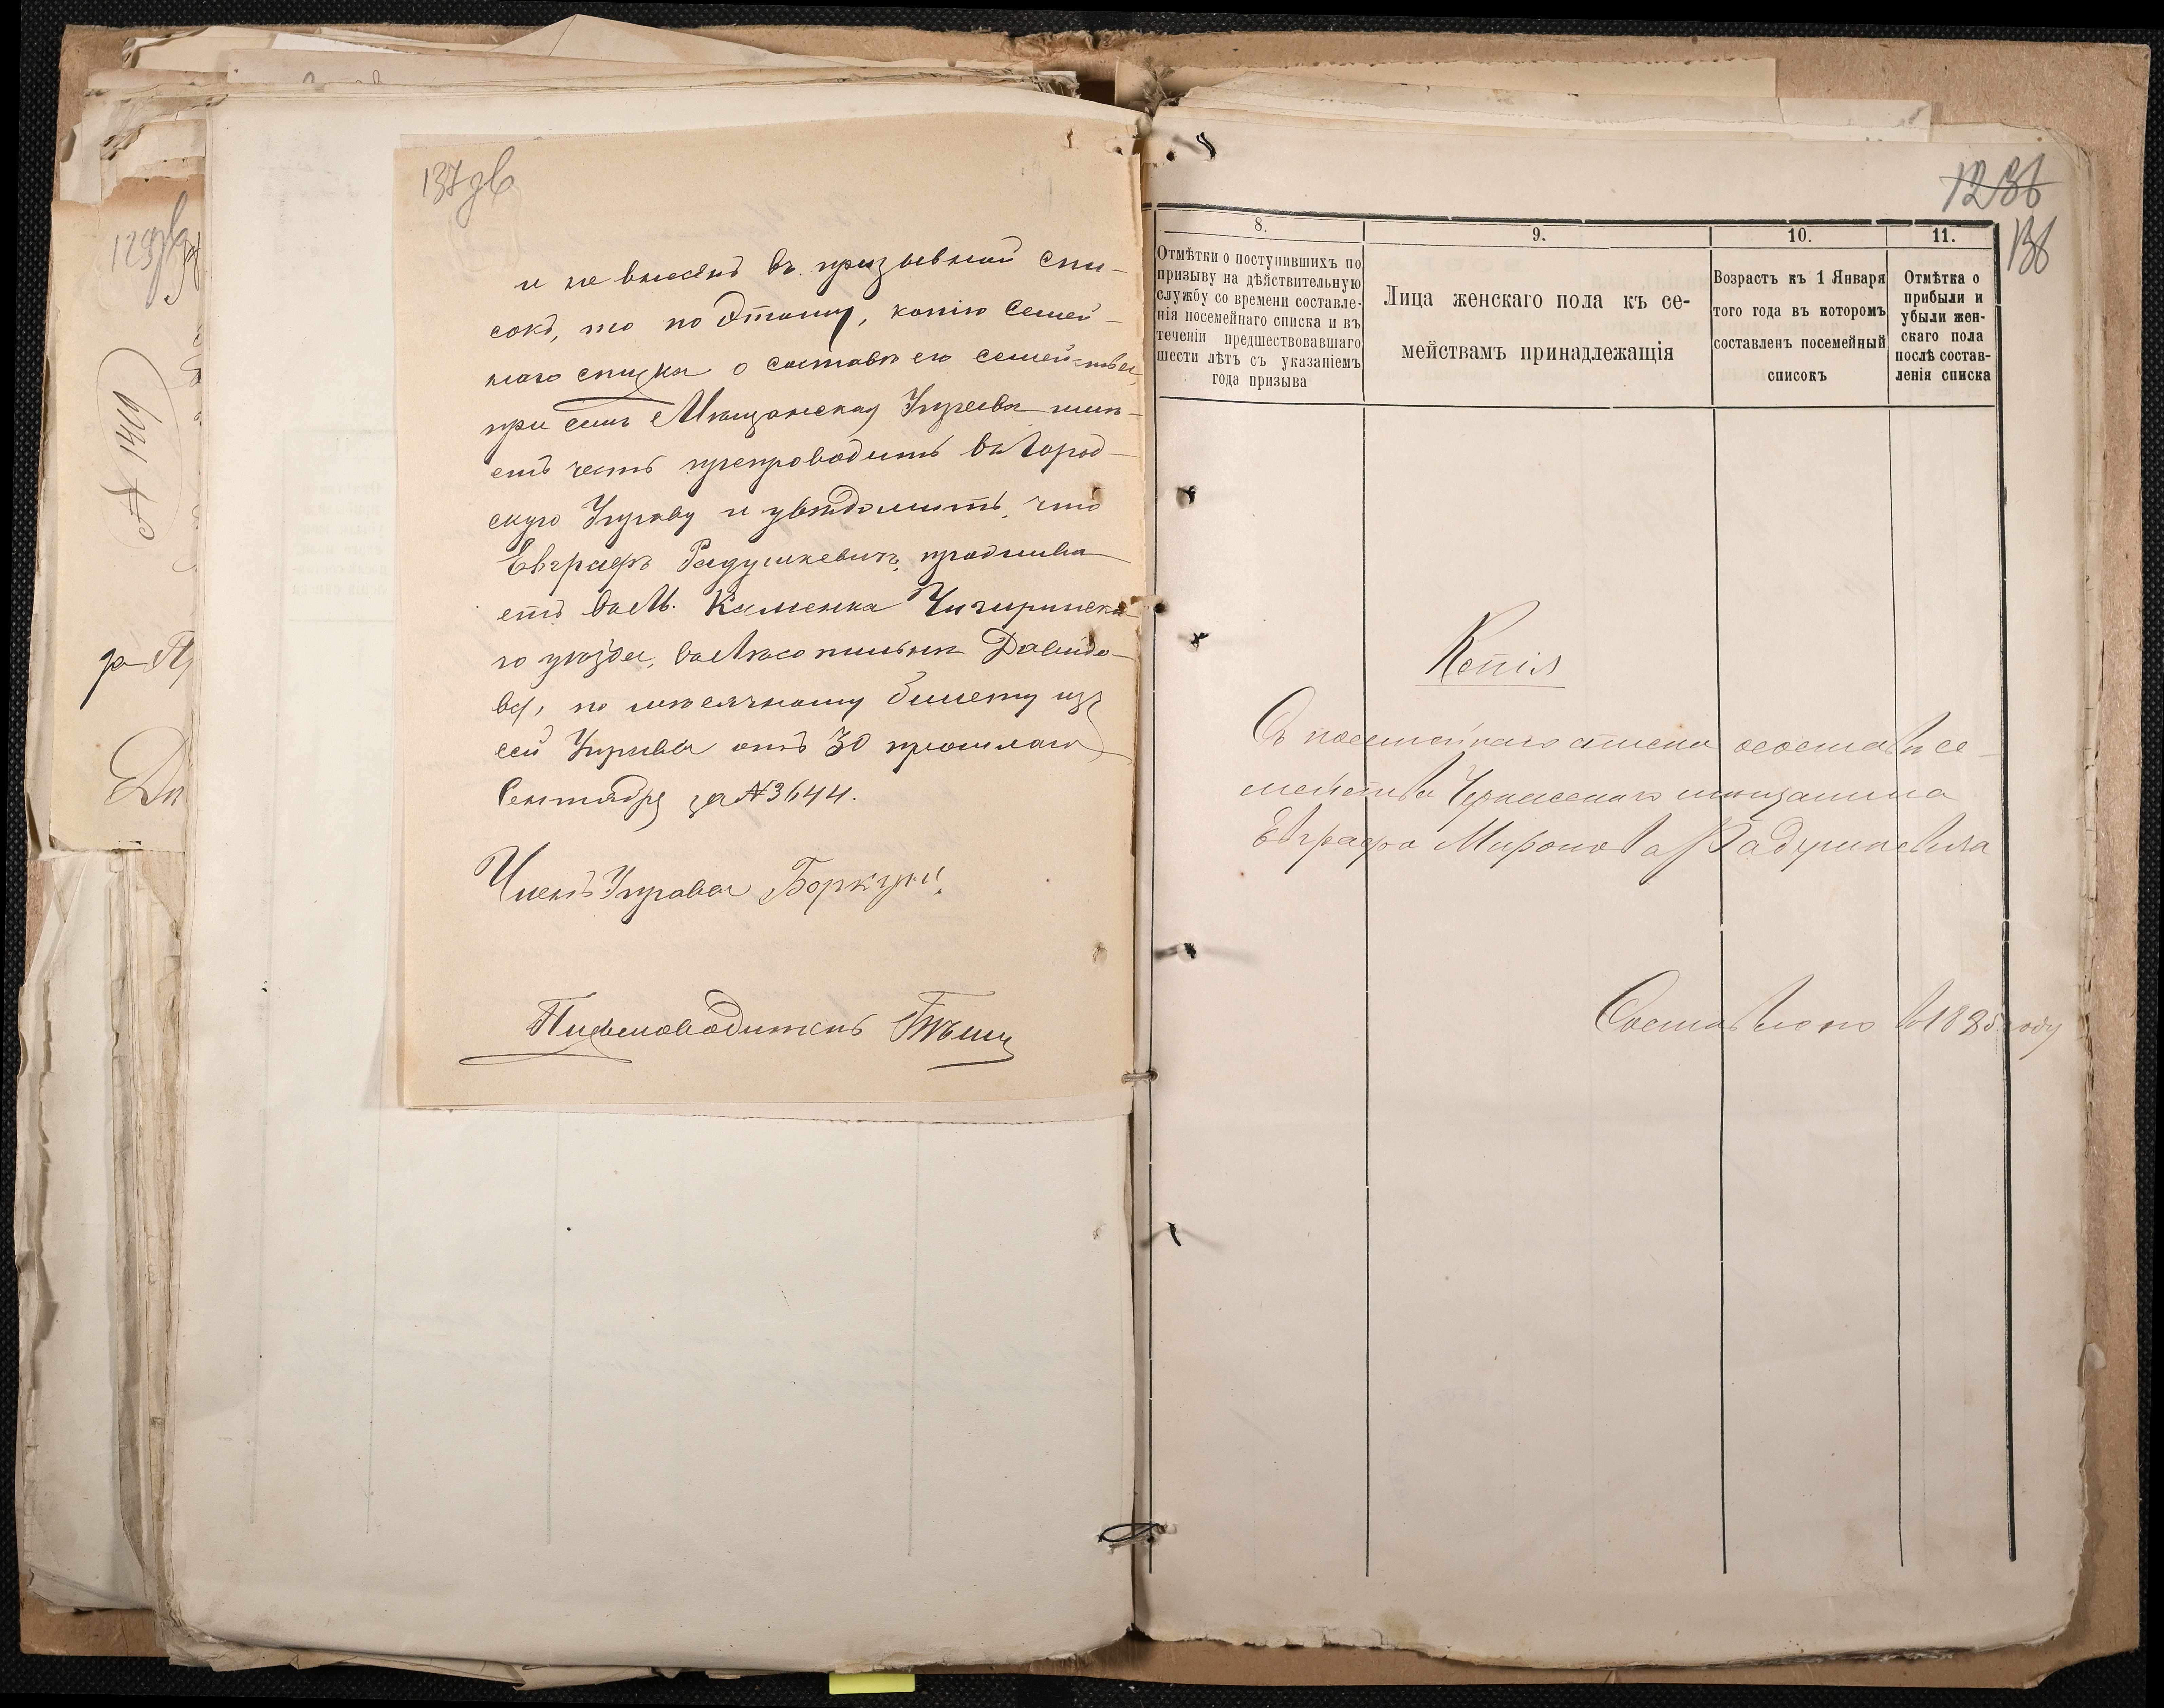 137 об
и не внесенъ въ призывной спи-
сокъ, то по этому, копію семей-
наго списка о составѣ его семейства,
при семъ Мѣщанская Управа имѣ-
етъ честь препроводить въ Город-
скую Управу и увѣдомить, что
Евграфъ Радушкевичъ, прожива-
етъ въ М. Каменка Чигиринска-
го уѣзда, въ Лѣсопильнѣ Давидо-
ва, по мѣсячному билету изъ
сей Управы отъ 30 прошлаго
Сентября за № 3644.
Членъ Управы
Письмоводитель
№ 1409
129
1236
136
8.
Отмѣтки о поступившихъ по
призыву на дѣйствительную
службу со времени составле-
нія посемейнаго списка и въ
теченіи предшествовавшаго
шести лѣтъ съ указаніемъ
года призыва
9.
Лица женскаго пола къ се-
мействамъ принадлежащія
10.
Возрастъ къ 1 Января
того года въ которомъ
составленъ посемейный
списокъ
11.
Отмѣтка о
прибыли и
убыли жен-
скаго пола
послѣ состав-
ленія списка
Копія
Съ посемейнаго списка о составѣ се-
мейства Черкасскаго мѣщанина
Евграфа Миронова Радушкевича
Составлено въ 1885 году